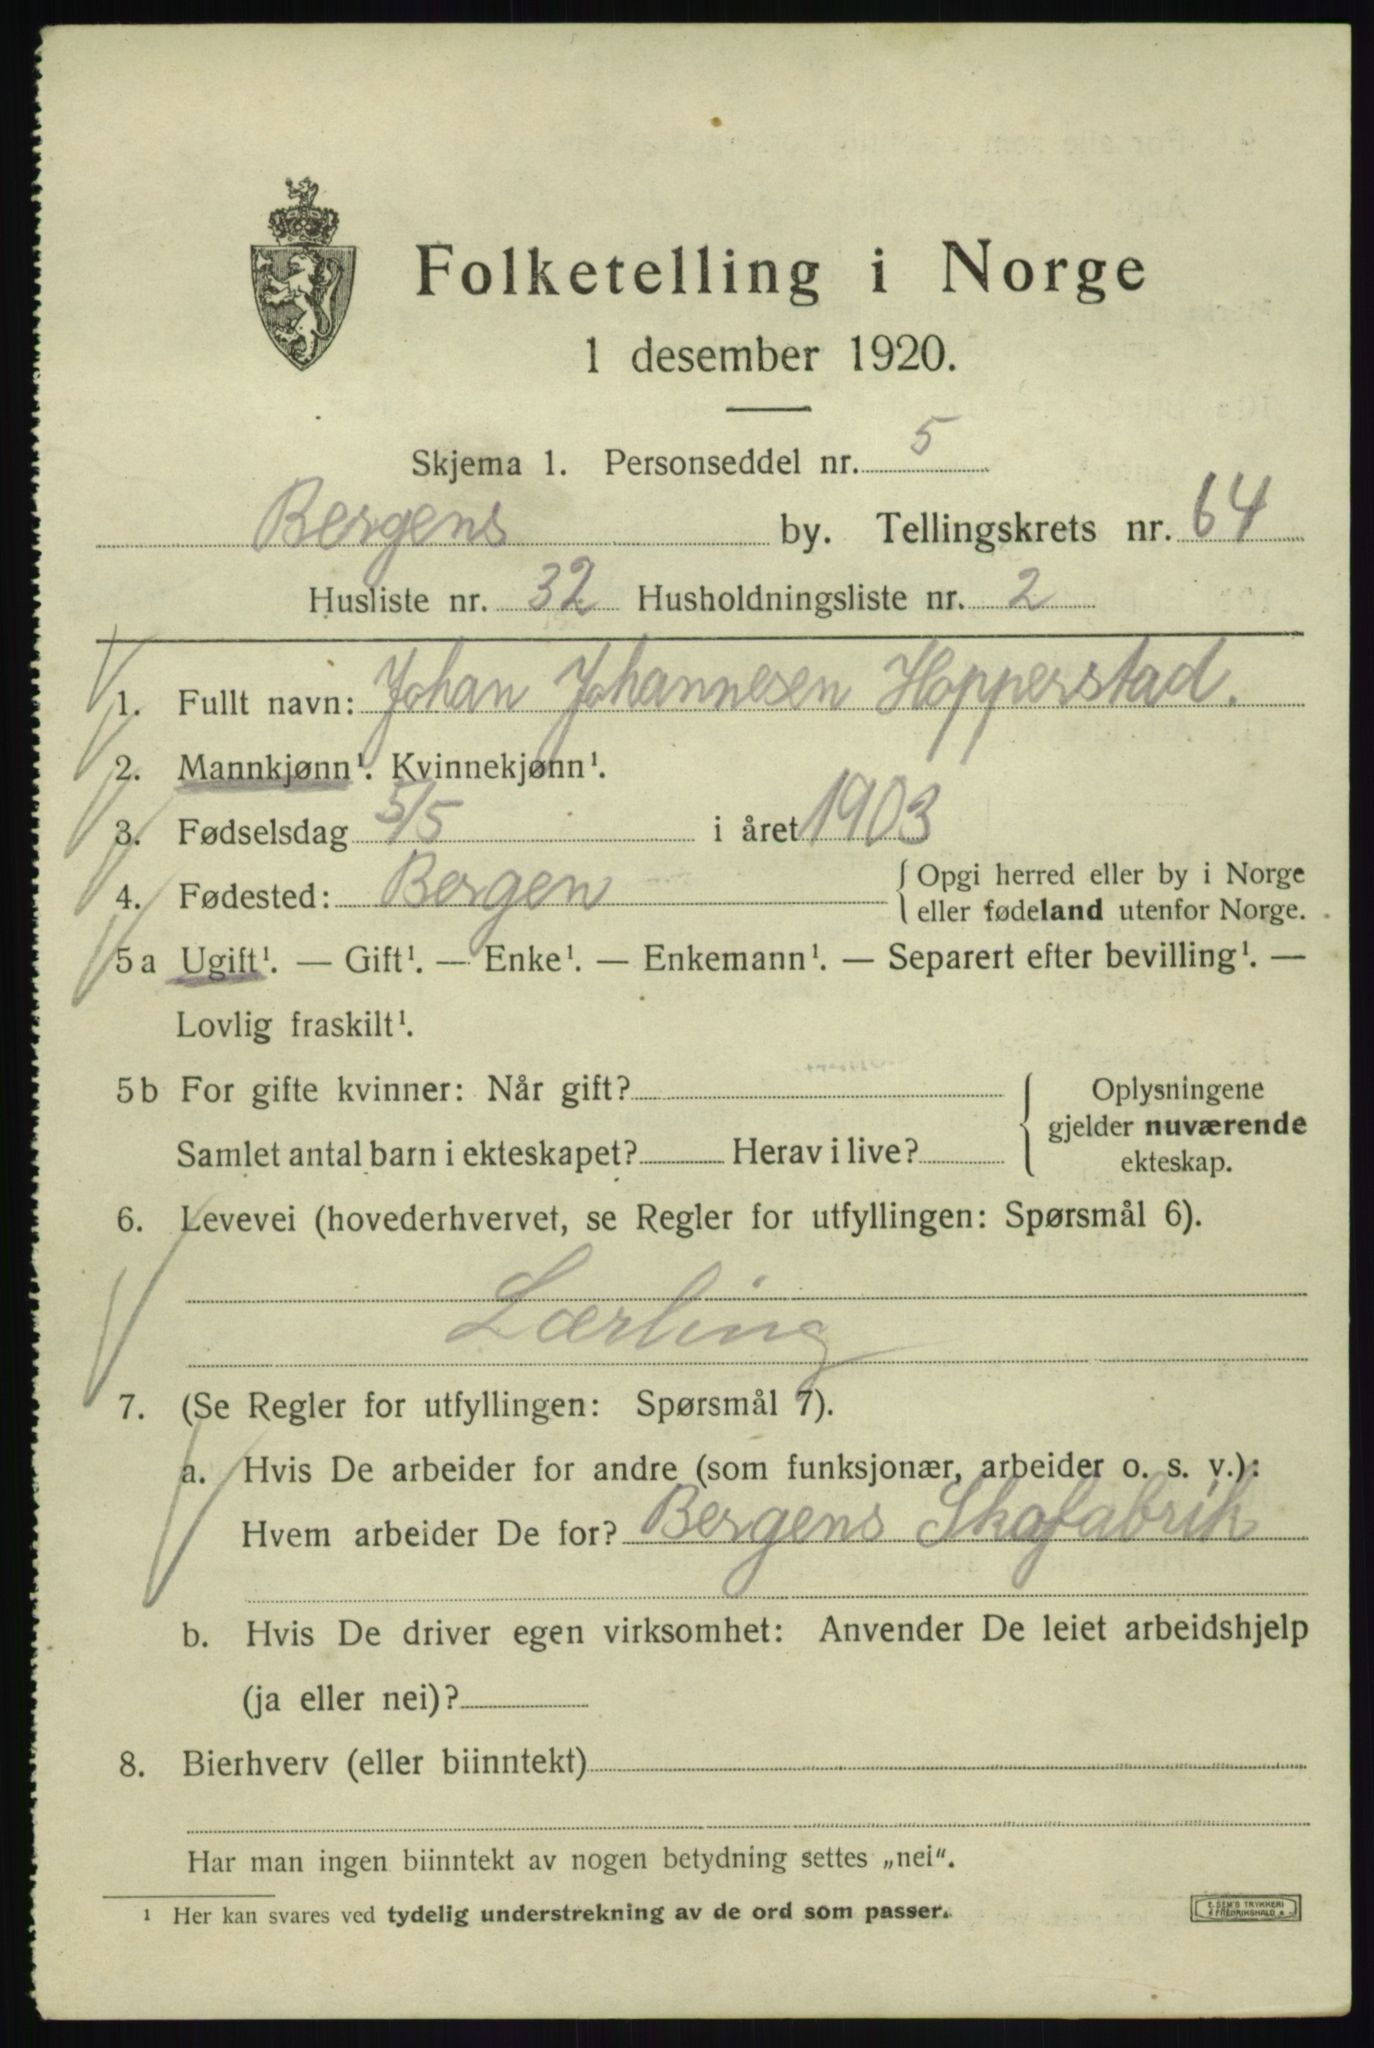 Folketelling i Norge
1 desember 1920.
Skjema 1. Personseddel nr. 5
Bergens by. Tellingskrets nr. 64
Husliste nr. 32 Husholdningsliste nr. 2
1. Fullt navn: Johan Johannesen Hopperstad.
2. Mannkjønn¹. Kvinnekjønn¹.
3. Fødselsdag 5/5 i året 1903
4. Fødested: Bergen { Opgi herred eller by i Norge
eller fødeland utenfor Norge.
5a Ugift¹. — Gift¹. — Enke¹. — Enkemann¹. — Separert efter bevilling¹. —
Lovlig fraskilt¹.
5b For gifte kvinner: Når gift?
Samlet antal barn i ekteskapet? Herav i live?
Oplysningene
gjelder nuværende
ekteskap.
6. Levevei (hovederhvervet, se Regler for utfyllingen: Spørsmål 6).
Lærling
7. (Se Regler for utfyllingen: Spørsmål 7).
a. Hvis De arbeider for andre (som funksjonær, arbeider o. s. v.):
Hvem arbeider De for? Bergens Skofabrik
b. Hvis De driver egen virksomhet: Anvender De leiet arbeidshjelp
(ja eller nei)?
8. Bierhverv (eller biinntekt)
Har man ingen biinntekt av nogen betydning settes „nei“.
¹ Her kan svares ved tydelig understrekning av de ord som passer.